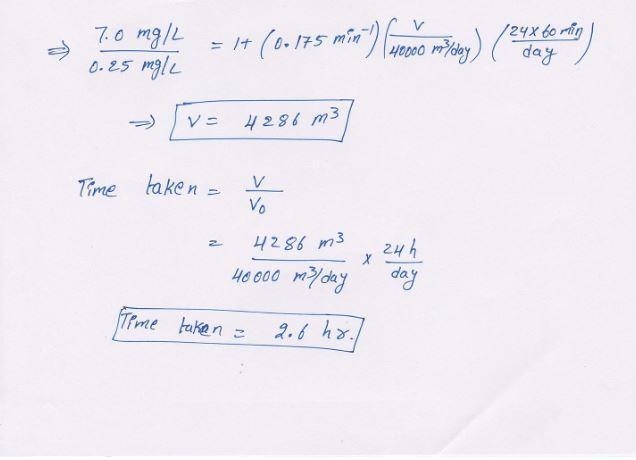 ⇒ 7.0 mg/L / 0.25 mg/L = 1 + (0.175 min⁻¹) (V / 40000 m³/day) (24 x 60 min / day)
⇒ V = 4286 m³
Time taken = V / V₀
= 4286 m³ / 40000 m³/day x 24 h / day
Time taken = 2.6 hr.